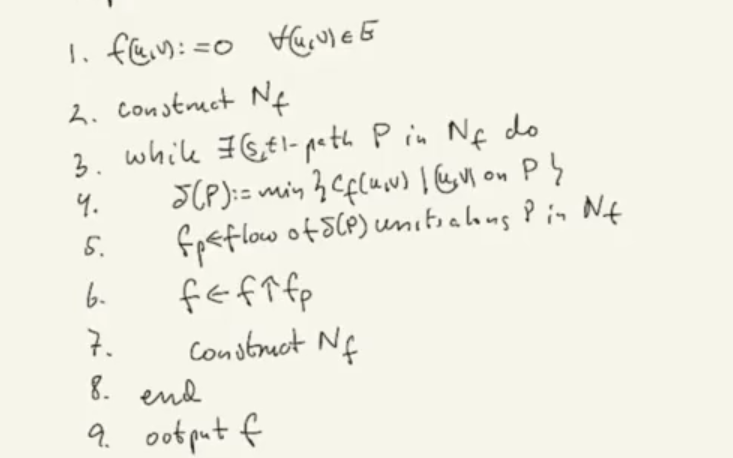 1. f(u,v):=0 ∀(u,v)∈E
2. construct N_f
3. while ∃(s,t)-path P in N_f do
4. δ(P):=min{c_f(u,v)|(u,v) on P}
5. f_P←flow of δ(P) units along P in N_f
6. f←f↑f_P
7. construct N_f
8. end
9. output f